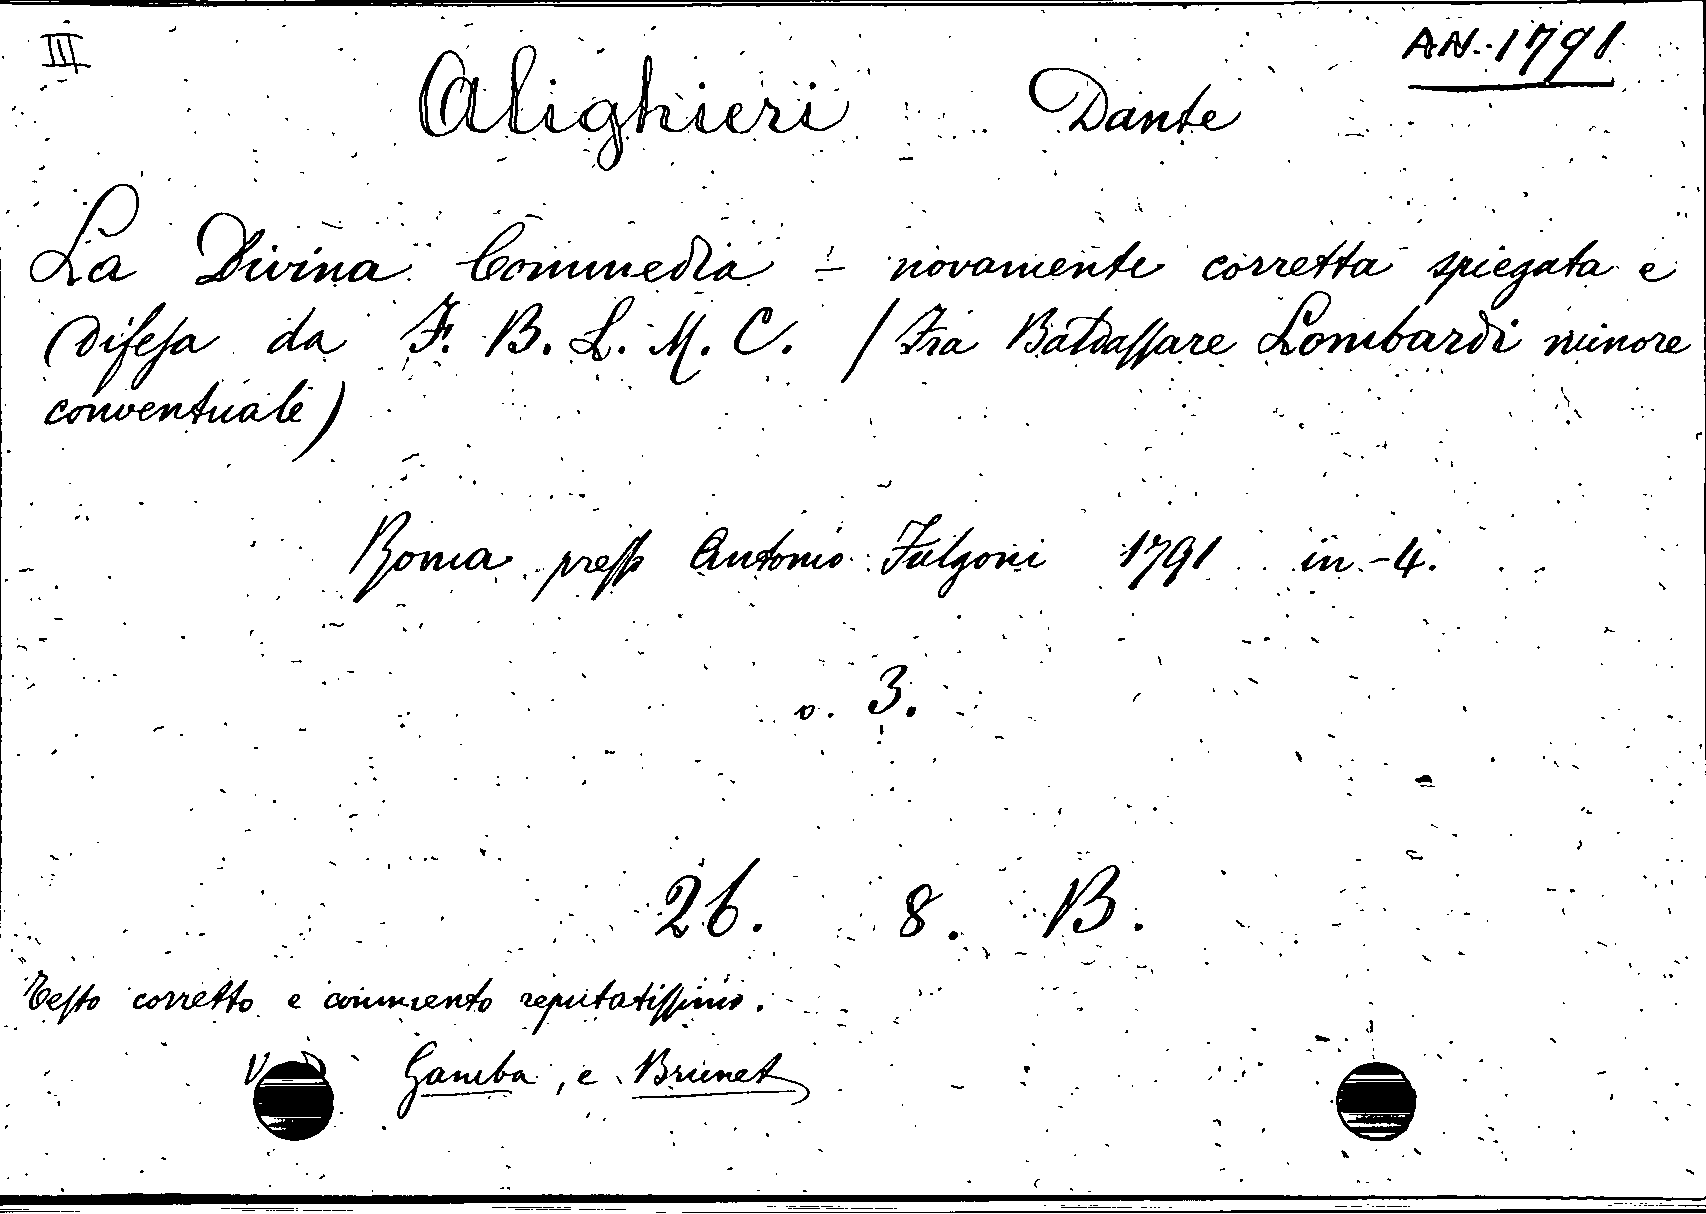 III
AN. 1791
Alighieri Dante
La Divina Commedia - novamente corretta spiegata e
difesa da F. B. L. M. C. (Fra Baldassare Lombardi minore
conventuale)
Roma presso Antonio Fulgoni 1791 in-4.
v. 3.
26. 8. B.
Testo corretto e commento reputatissimo.
Gamba, e Brunet